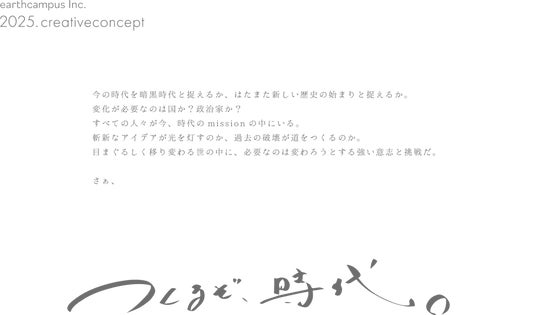 earthcampus Inc.
2025. creativeconcept
今の時代を暗黒時代と捉えるか、はたまた新しい歴史の始まりと捉えるか。
変化が必要なのは国か？政治家か？
すべての人々が今、時代の mission の中にいる。
斬新なアイデアが光を灯すのか、過去の破壊が道をつくるのか。
目まぐるしく移り変わる世の中に、必要なのは変わろうとする強い意志と挑戦だ。
さぁ、
つくるぞ、時代。